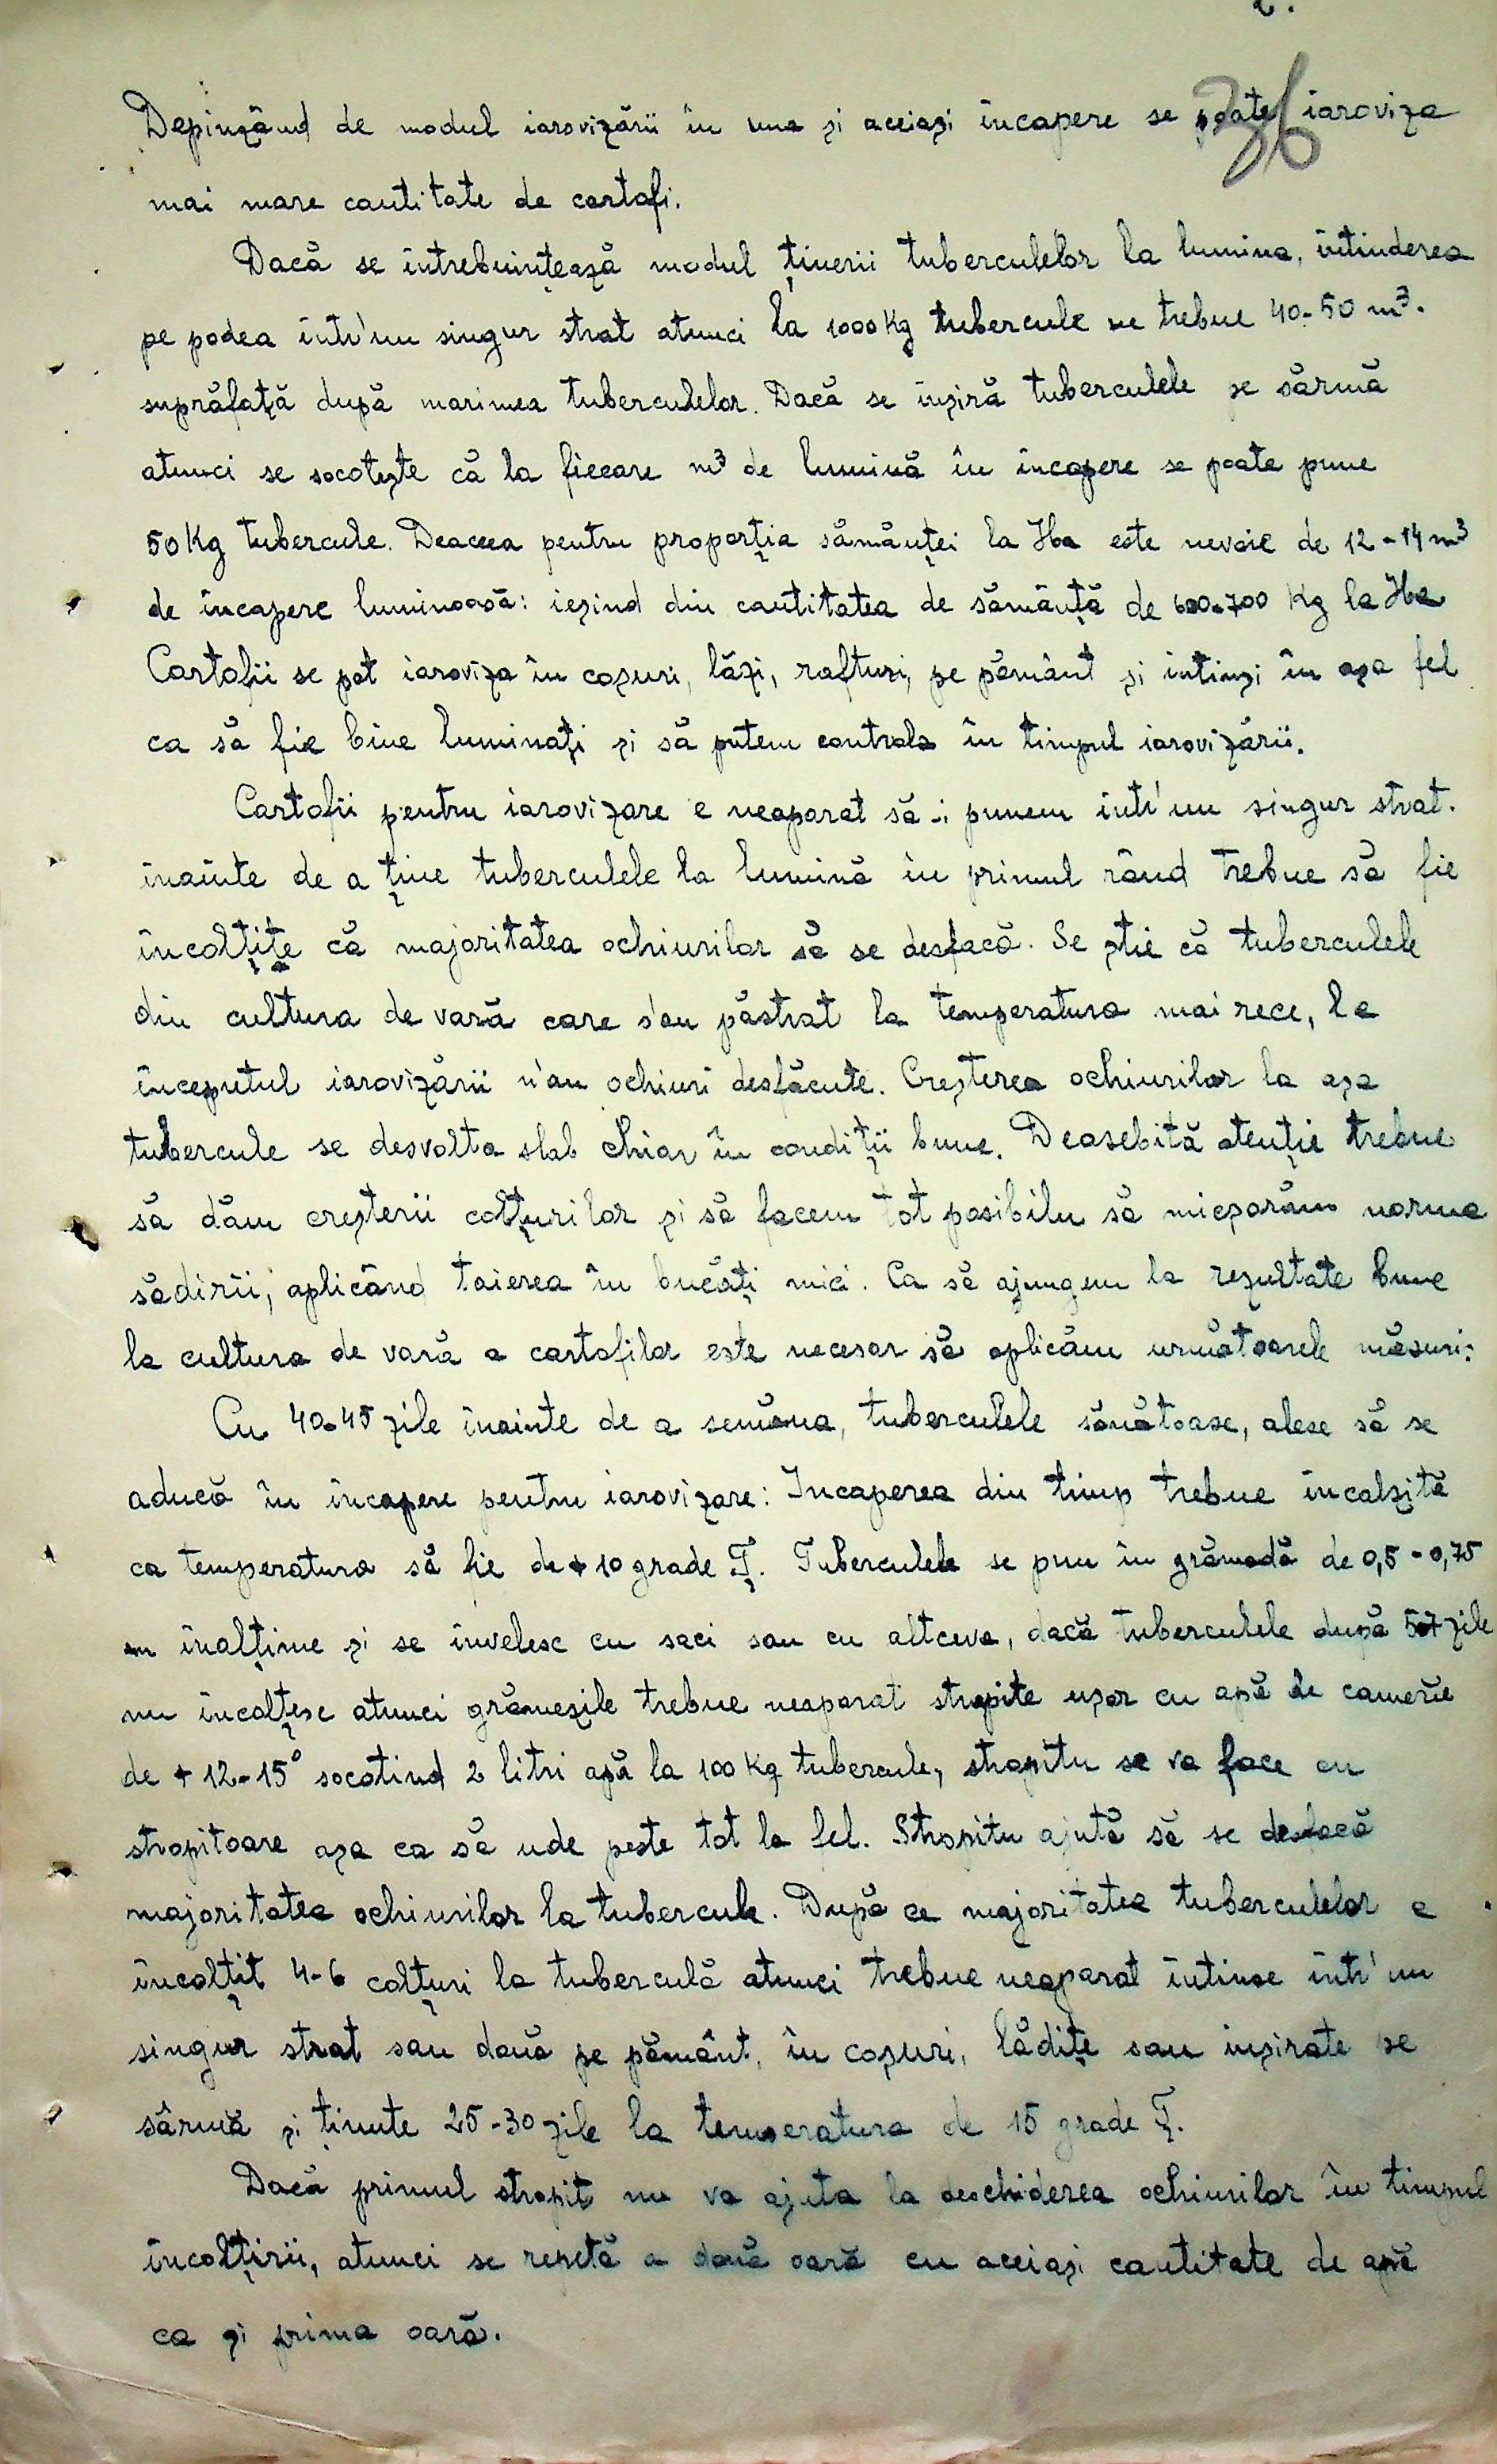 2.
36
Depinzând de modul iarovizării în una și aceiași încapere se poate iaroviza
mai mare cantitate de cartofi.
Dacă se întrebuințează modul ținerii tuberculelor la lumina, intinderea
pe podea într'un singur strat atunci la 1000 Kg tubercule ne trebue 40-50 m³.
suprăfață după marimea tuberculelor. Dacă se înșiră tuberculele pe sărmă
atunci se socotește că la fiecare m³ de lumină în încapere se poate pune
50 Kg tubercule. Deaceea pentru proporția sămânței la Ha este nevoie de 12-14 m³
de încapere luminoasă: ieșind din cantitatea de sămânță de 600-700 Kg la Ha
Cartofii se pot iaroviza în coșuri, lăzi, rafturi, pe pământ și intinși în așa fel
ca să fie bine luminați și să putem controla în timpul iarovizării.
Cartofii pentru iarovizare e neaparat să-i punem într'un singur strat.
înainte de a ține tuberculele la lumină în primul rând trebue să fie
încolțite că majoritatea ochiurilor să se desfacă. Se știe că tuberculele
din cultura de vară care s'au păstrat la temperatura mai rece, la
începutul iarovizării n'au ochiuri desfăcute. Creșterea ochiurilor la așa
tubercule se desvolta slab chiar în condiții bune. Deasebită atenție trebue
să dăm creșterii colțurilor și să facem tot posibilu să micșorăm norma
sădirii, aplicând taierea în bucăți mici. Ca să ajungem la rezultate bune
la cultura de vară a cartofilor este necesar să aplicăm următoarele măsuri:
Cu 40-45 zile înainte de a semăna, tuberculele sănătoase, alese să se
aducă în încapere pentru iarovizare: Incaperea din timp trebue incalzită
ca temperatura să fie de + 10 grade Ț. Tuberculele se pun în grămadă de 0,5 - 0,75
m înalțime și se învelesc cu saci sau cu altceva, dacă tuberculele după 5-7 zile
nu încolțesc atunci grămezile trebue neaparat stropite ușor cu apă de camerie
de + 12-15° socotind 2 litri apă la 100 Kg tubercule, stropitu se va face cu
stropitoare așa ca să ude peste tot la fel. Stropitu ajută să se desfacă
majoritatea ochiurilor la tubercule. După ce majoritatea tuberculelor a
încolțit 4-6 colțuri la tuberculă atunci trebue neaparat intinse într'un
singur strat sau două pe pământ, în coșuri, lădițe sau inșirate pe
sârmă și ținute 25-30 zile la temperatura de 15 grade Ț.
Dacă primul stropit nu va ajuta la deschiderea ochiurilor în timpul
încolțirii, atunci se repetă a două oară cu aceiași cantitate de apă
ca și prima oară.